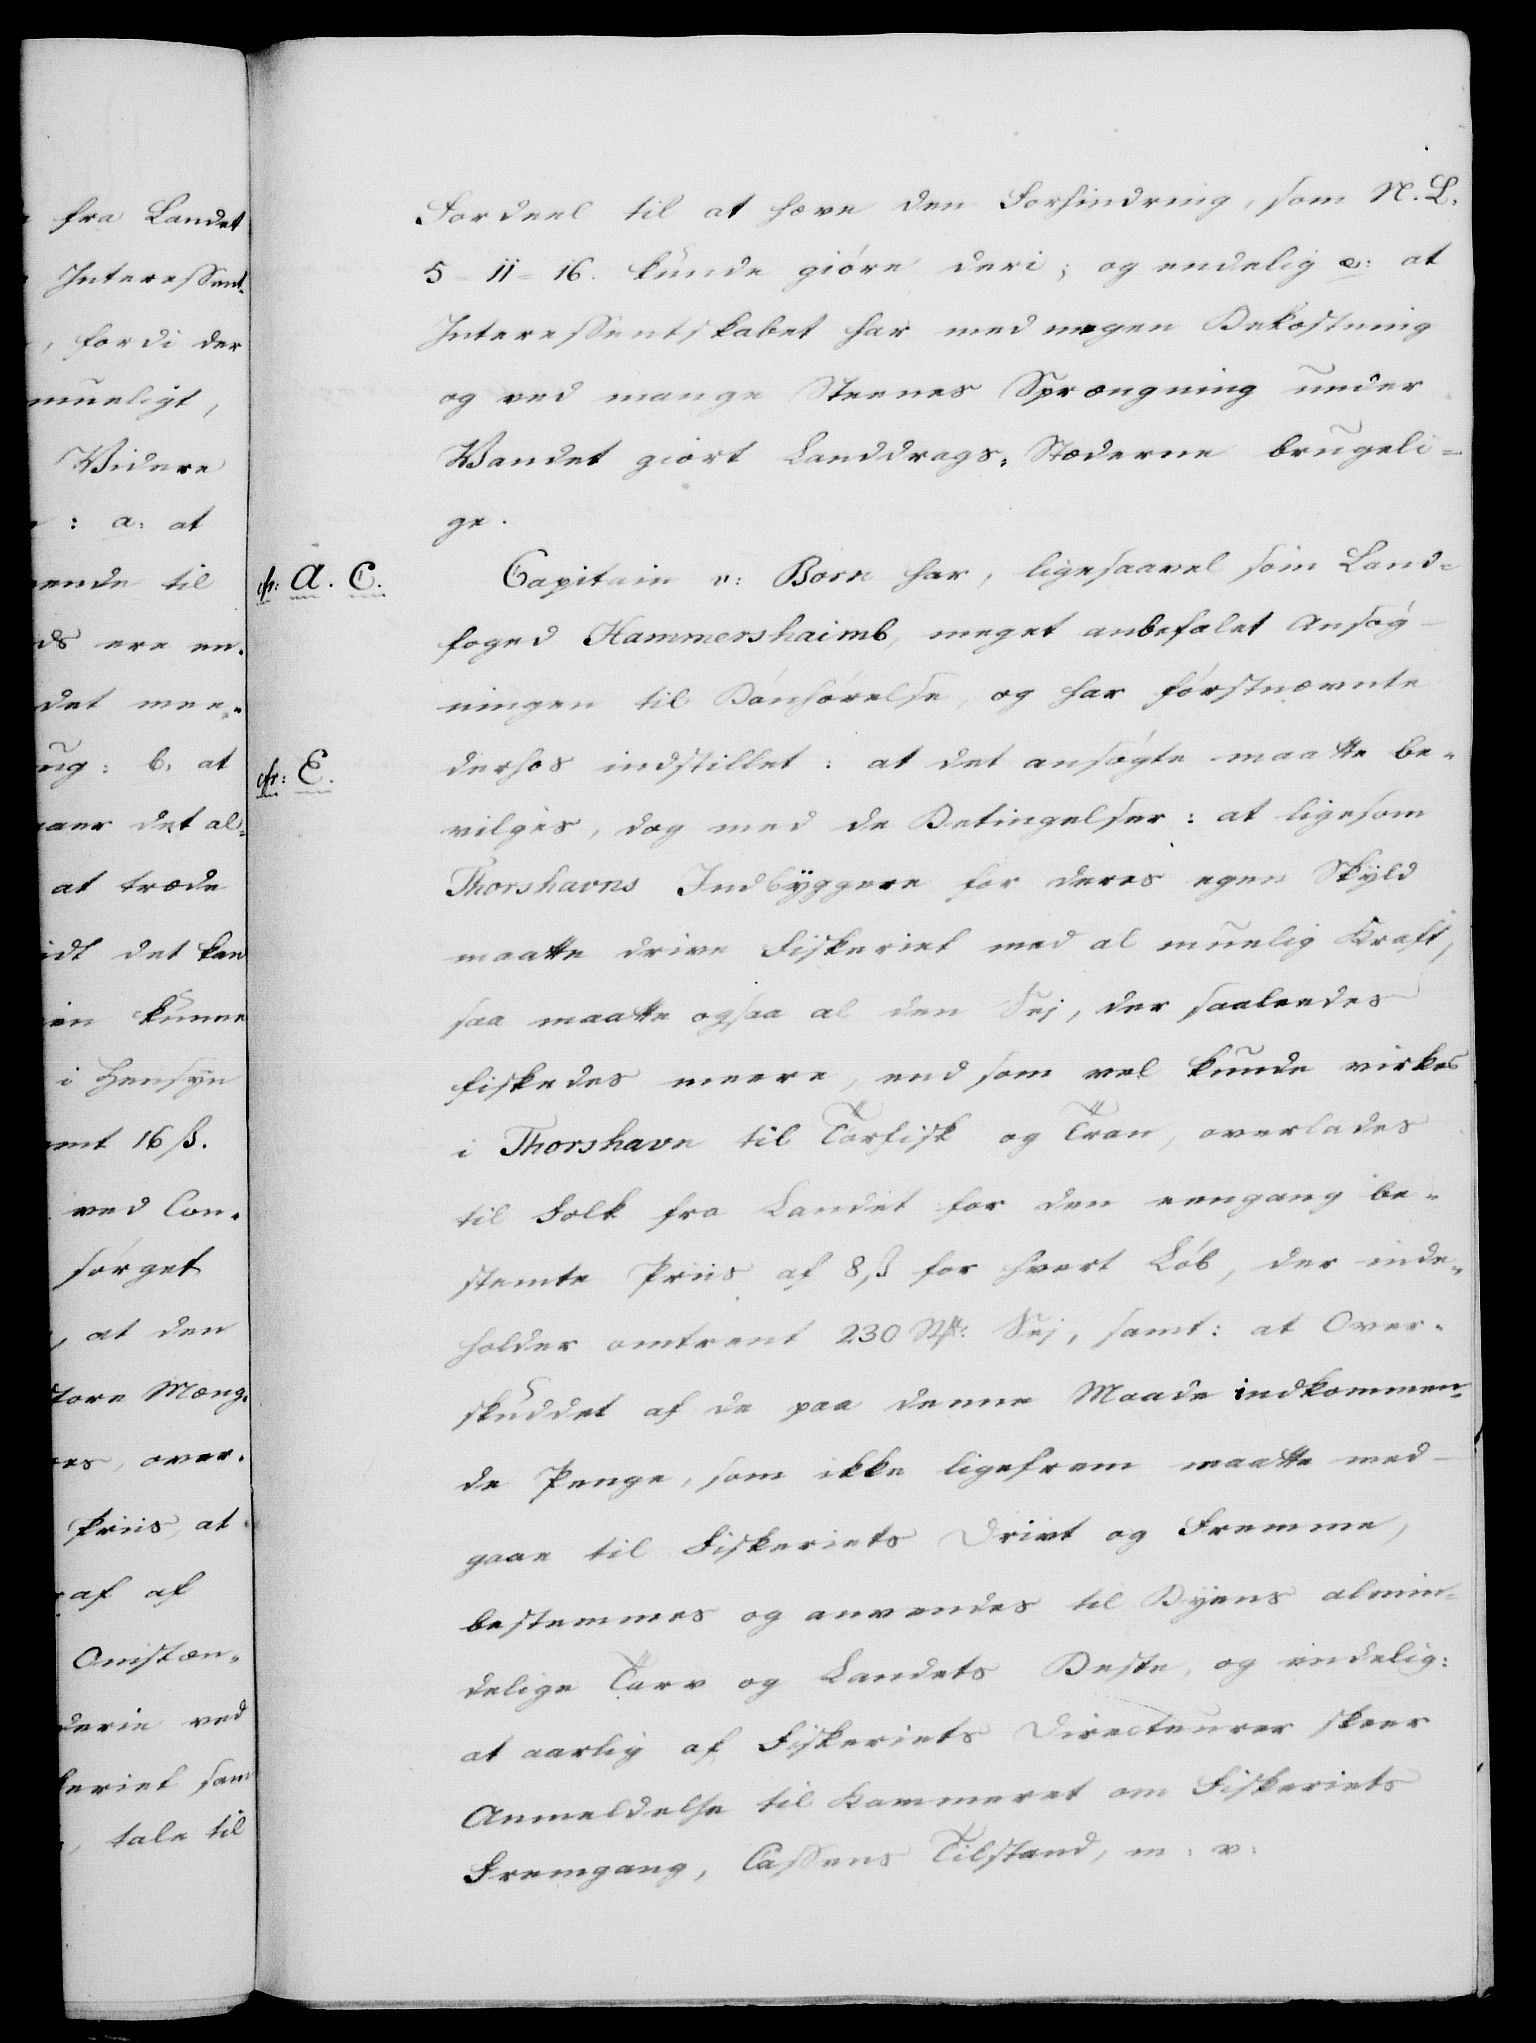 fra Landet
Interessent-
, fordi der
mueligt,
Videre
: a: at
ende til
ds ere en-
det mee-
ug: b: at
aer det al-
at træde
idt det kan
en kunne
i Hensyn
mt 16 ß.
ved Con-
sørget
, at den
store Mæng-
es, over-
Priis, at
af af
Omstæn-
derie ved
keriet sam
, tale til
Fordeel til at hæve den Forhindring, som N. L.
5-11-16. kunde giøre deri; og endelig e: at
Interessentskabet har med megen Bekostning
og ved mange Steenes Sprængning under
Vandet giort Landdrags-Stæderne brugeli-
ge.
cfr: A. C.
Capitain v: Born har, ligesaavel som Land-
foged Hammershaimb, meget anbefalet Ansøg-
ningen til Bønhørelse, og har førstnævnte
cfr: E.
derhos indstillet: at det ansøgte maatte be-
vilges, dog med de Betingelser: at ligesom
Thorshavns Indbÿggere for deres egen Skÿld
maatte drive Fiskeriet med al muelig Kraft,
saa maatte ogsaa al den Sej, der saaledes
fiskedes meere, end som vel kunde virkes
i Thorshavn til Tørfisk og Tran, overlades
til Folk fra Landet for den eengang be-
stemte Priis af 8 ß for hvert Løb, der inde-
holder omtrent 230 Stk: Sej, samt: at Over-
skuddet af de paa denne Maade indkommen-
de Penge, som ikke ligefrem maatte med-
gaae til Fiskeriets Drivt og Fremme,
bestemmes og anvendes til Byens almin-
delige Tarv og Landets Beste, og endelig:
at aarlig af Fiskeriets Directeurer skeer
Anmeldelse til Kammeret om Fiskeriets
Fremgang, Cassens Tilstand, m: v: